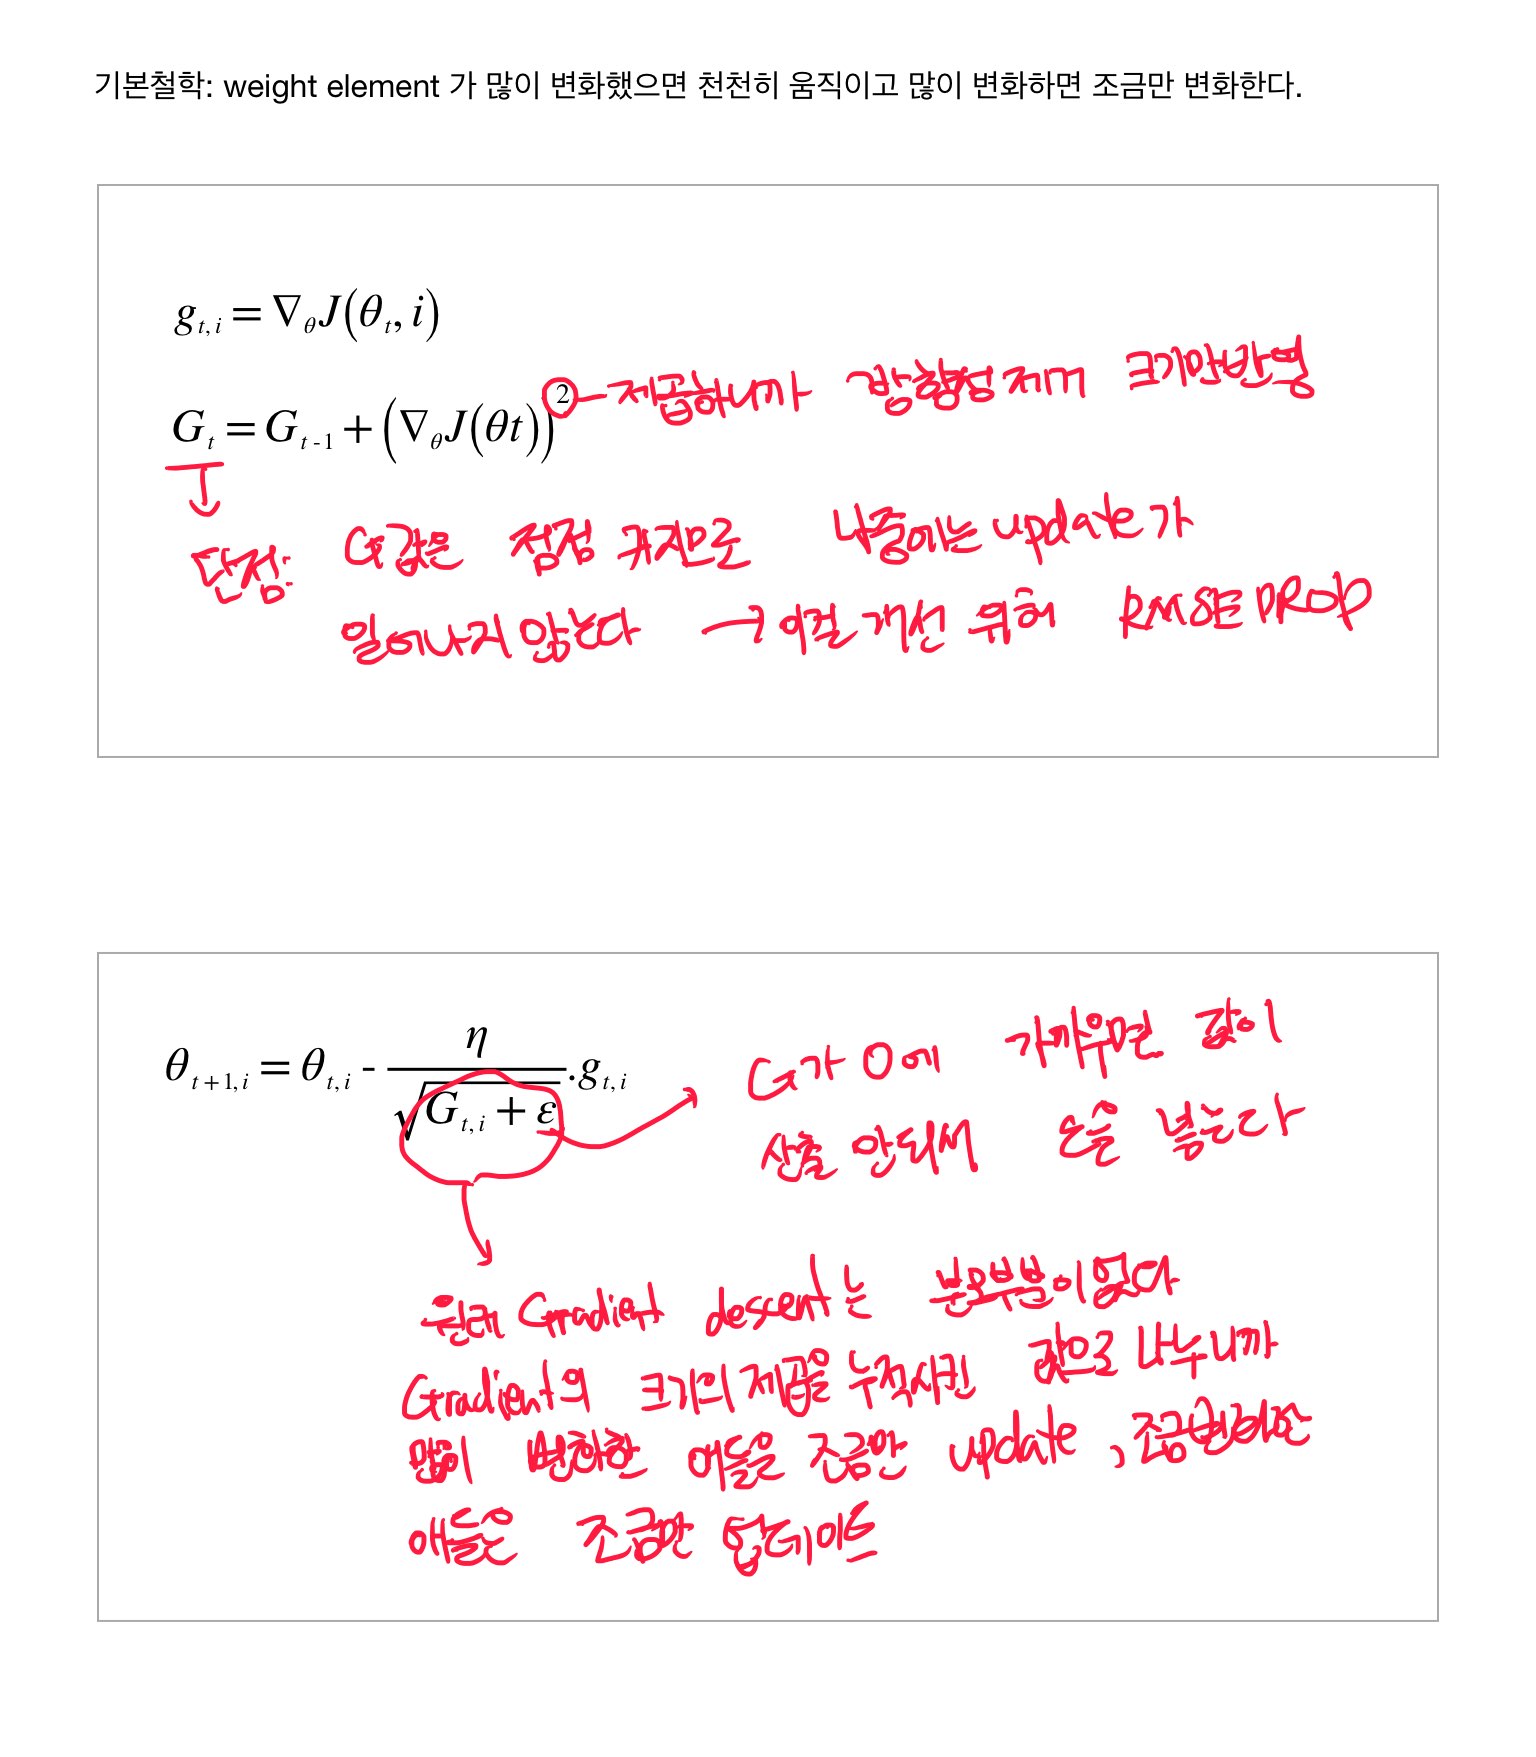 기본철학: weight element 가 많이 변화했으면 천천히 움직이고 많이 변화하면 조금만 변화한다.
g_{t,i} = ∇_θ J(θ_t, i)
G_t = G_{t-1} + (∇_θ J(θt))^2 제곱하니까 방향성 제거 크기만 반영
단점: G값은 점점 커지므로 나중에는 update가
일어나지 않는다 → 이걸 개선 위해 RMSE PROP
θ_{t+1,i} = θ_{t,i} - η / √(G_{t,i} + ε) . g_{t,i}
G가 0에 가까우면 값이
산출 안되서 ε을 넣는다
원래 Gradient descent는 분모부분이 없다
Gradient의 크기의 제곱을 누적시킨 값으로 나누니까
많이 변화한 애들은 조금만 update, 조금변화한
애들은 조금만 업데이트